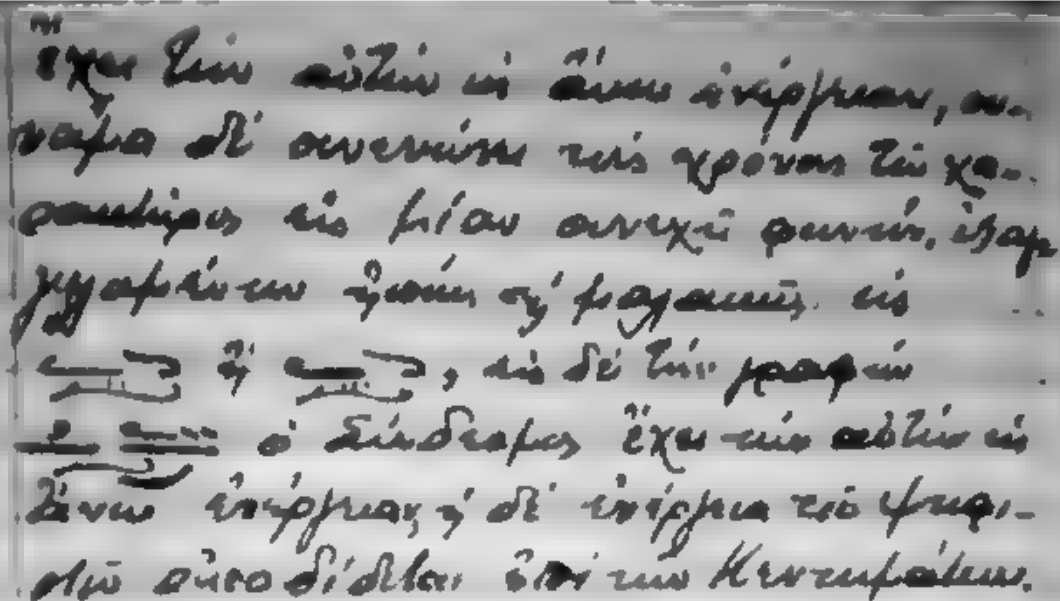 ἔχει τὴν αὐτὴν ὡς ἄνω ἐνέργειαν, συ-
νάμα δὲ συνενώνει τοὺς χρόνους τῶν χα-
ρακτήρων εἰς μίαν συνεχῆ φωνήν,
εἰς
ἢ , εἰς δὲ τὴν γραφὴν
ὁ Σύνδεσμος ἔχει τὴν αὐτὴν ὡς
ἄνω ἐνέργειαν, ἡ δὲ ἐνέργεια τοῦ ψηφι-
στοῦ ἀποδίδεται ἐπὶ τῶν Κεντημάτων.